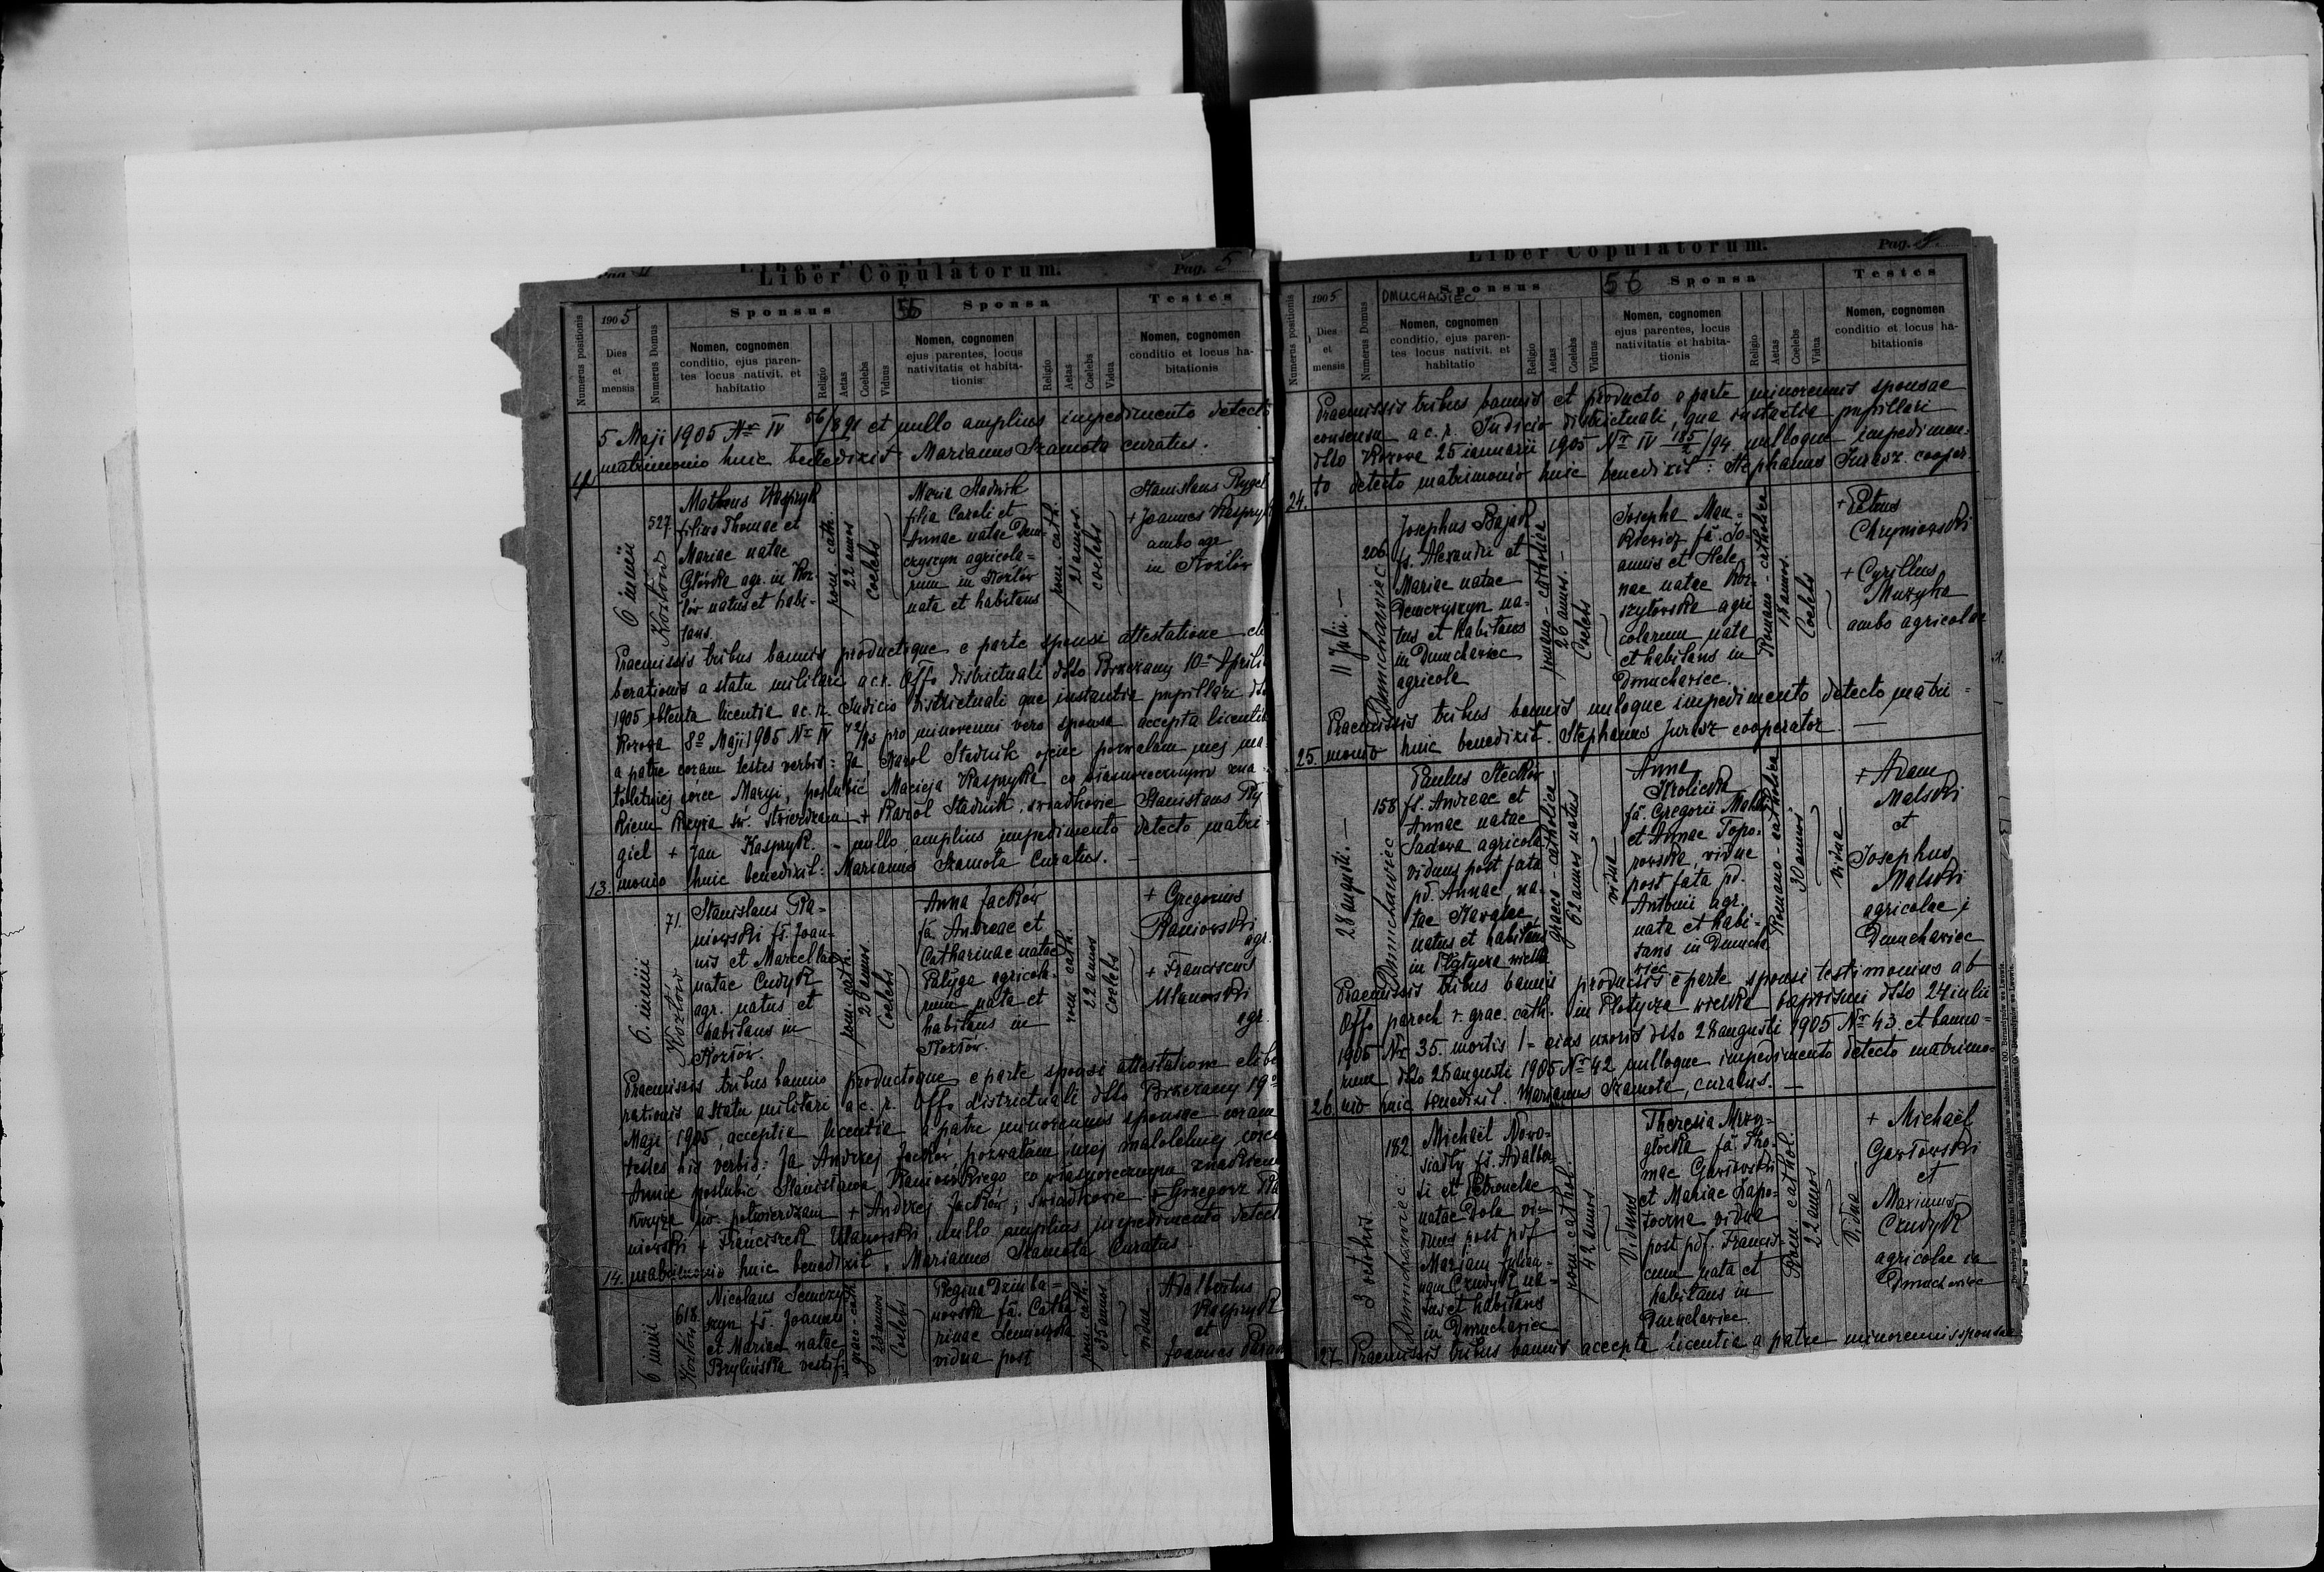 Liber Copulatorum.
Pag. 5
1905
Sponsus
55
Sponsa
Testes
Numerus positionis
Dies et mensis
Numerus Domus
Nomen, cognomen
conditio, ejus paren-
tes locus nativit. et
habitatio
Religio
Aetas
Coelebs
Viduus
Nomen, cognomen
ejus parentes, locus
nativitatis et habita-
tionis
Religio
Aetas
Coelebs
Vidua
Nomen, cognomen
conditio et locus ha-
bitationis
5 Maji 1905 Nr IV 56/891 et nullo amplius impedimento detecto
matrimonio huic benedixit Marianus Szamota curatus.
6 junii
527
Kozłów
Matheus Kaspryk
filius Thomae et
Mariae natae
Główka agr. in Koz-
łów natus et habi-
tans
rom. cath.
22 annos
Coelebs
Maria Stadnik
filia Caroli et
Annae natae Dem-
czyszyn agricola-
rum in Kozłów
nata et habitans
rom. cath.
21 annos
coelebs
Stanislaus Rygiel
+ Joannes Kaspryk
ambo agr
in Kozłów
Praemissis tribus bannis productoque e parte sponsi attestatione eli
berationis a statu militari a c.r. Offo districtuali ddto Brzeżany 10 Aprilis
1905 obtenta licentia a c.r. Judicio districtuali qua instantia pupillari ddto
Kozowa 8o Maji 1905 Nr IV 72/93 pro minorenni vero sponsa accepta licentia
a patre coram testes verbis: Ja Karol Stadnik ojciec pozwalam mej ma-
łoletniej córce Maryi, poślubić Macieja Kaspryka co własnoręcznym zna-
kiem krzyża św. stwierdzam + Karol Stadnik, świadkowie Stanisław Ry
giel + Jan Kaspryk. - nullo amplius impedimento detecto matri-
monio huic benedixit: Marianus Szamota Curatus.
13.
6. junii
71.
Kozłów
Stanislaus Ra-
niowski fs. Joan-
nis et Marcellae
natae Cudyk
agr. natus et
habitans in
Kozłów.
rom. cath.
26 annos
Coelebs
Anna Jacków
fa. Andreae et
Catharinae natae
Pałyga agricola-
rum nata et
habitans in
Kozłów.
rom. cath.
22 annos
Coelebs
+ Gregorius
Raniowski
agr.
+ Franciscus
Ulanowski
agr.
Praemissis tribus bannis productoque e parte sponsi attestatione elibe
rationis a statu militari a c.r. Offo districtuali ddto Brzeżany 19o
Maji 1905, accepta licentia a patre minorennis sponsae coram
testes his verbis: Ja Andrzej Jacków pozwalam mej małoletniej córce
Annie poślubić Stanisława Raniowskiego co własnoręcznym znakiem
krzyża św. potwierdzam + Andrzej Jacków, świadkowie + Grzegorz Ra
niowski + Franciszek Ulanowski, nullo amplius impedimento detecto
matrimonio huic benedixit. Marianus Szamota Curatus
14.
6 junii
618.
Kozłów
Nicolaus Demczy-
szyn fs. Joannis
et Mariae natae
Brylińska
graeco-cath.
23 annos
Coelebs
Regina Dzimba-
nowska fa. Catha
rinae
vidua post
rom. cath.
35 annos
vidua
Adalbertus
Kaspryk
et
Joannes
Liber Copulatorum.
Pag. 9.
1905
DMUCHAWIEC
Sponsus
56
Sponsa
Testes
Numerus positionis
Dies et mensis
Numerus Domus
Nomen, cognomen
conditio, ejus paren-
tes locus nativit. et
habitatio
Religio
Aetas
Coelebs
Viduus
Nomen, cognomen
ejus parentes, locus
nativitatis et habita-
tionis
Religio
Aetas
Coelebs
Vidua
Nomen, cognomen
conditio et locus ha-
bitationis
Praemissis tribus bannis et producto a parte minorennis sponsae
consensu a c.r. Judicio districtuali, qua instantia pupillari
ddto Kozowa 25 januarii 1905 Nr IV 185/2 /94 nulloque impedimen-
to detecto matrimonio huic benedixit: Stephanus Jurasz cooper.
24.
11 Julii. -
206
Dmuchawiec
Josephus Bajak
fs. Alexandri et
Mariae natae
Demczyszyn na-
tus et habitans
in Dmuchawiec
agricola
romano-catholica
26 annos.
Coelebs
Josepha Man-
kiewicz fa. Jo-
annis et Hele-
nae natae Kor-
szyłowska agri
colarum nata
et habitans in
Dmuchawiec.
Romano-catholica
18 annos.
Coelebs
+ Petrus
Chryniowski
+ Cyrillus
Muzyka
ambo agricolae
Praemissis tribus bannis nulloque impedimento detecto matri-
monio huic benedixit. Stephanus Jurasz cooperator.
25.
28 augusti. -
158
Dmuchawiec
Paulus Steckow
fs. Andreae et
Annae natae
Sadova agricola
viduus post fata
pd. Annae, na-
tae Kavalec,
natus et habitans
in Płotycza wielka
graeco-catholica
62 annos natus
vidua
Anna
Krolicka
fa. Gregorii Malski
et Annae Topo-
rowska, vidua
post fata pd.
Antonii agr.
nata et habi-
tans in Dmucha
wiec
Romano-catholica
30 annos
vidua
+ Adam
Malski
et
Josephus
Malski
agricolae j
Dmuchawiec
Praemissis tribus bannis productis e parte sponsi testimonius ab
Offo paroch r. grac. cath. in Płotycza wielka baptismi ddto 24 julii
1905 Nr 35. mortis 1-ae eius uxoris ddto 28 augusti 1905 Nr 43 et banno-
rum ddto 28 augusti 1905 Nr 42 nulloque impedimento detecto matrimo-
nio huic benedixit. Marianus Szamota, curatus. -
26.
3 octobris. -
182
Dmuchawiec
Michaël Nowo-
siadły fs. Adalber-
ti et Petronelae
natae Dola vi-
duus post pdf
Mariam Julian-
nam Czudyk na-
tus et habitans
in Dmuchawiec
rom cathol.
42 annos
Viduus
Theresia Mrzy-
głocka fa. Tho-
mae Gawłowski
et Mariae Zapo-
toczna vidua
post pdf. Francis-
cum nata et
habitans in
Dmuchawiec.
Rom. cathol.
22 annos
Vidua
+ Michaël
Gawłowski
et
Marianus
Czudyk
agricolae in
Dmuchawiec
27. Praemissis tribus bannis accepta licentia a patre minorennis sponsae